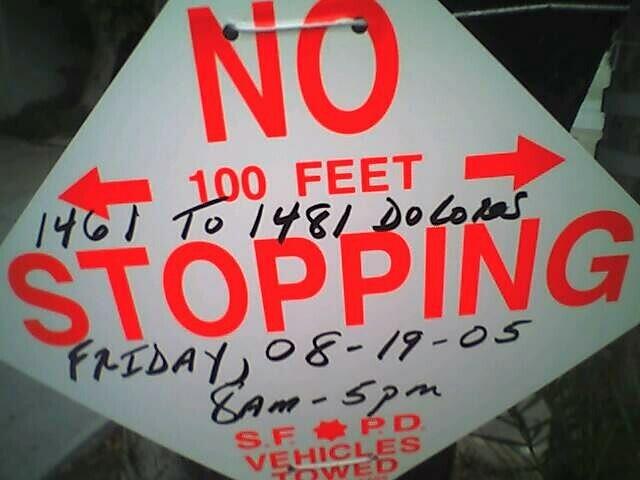 NO
100 FEET
1461 TO 1481 DOLORES
STOPPING
FRIDAY, 08-19-05
8AM-5pm
S.F. P.D.
VEHICLES
TOWED